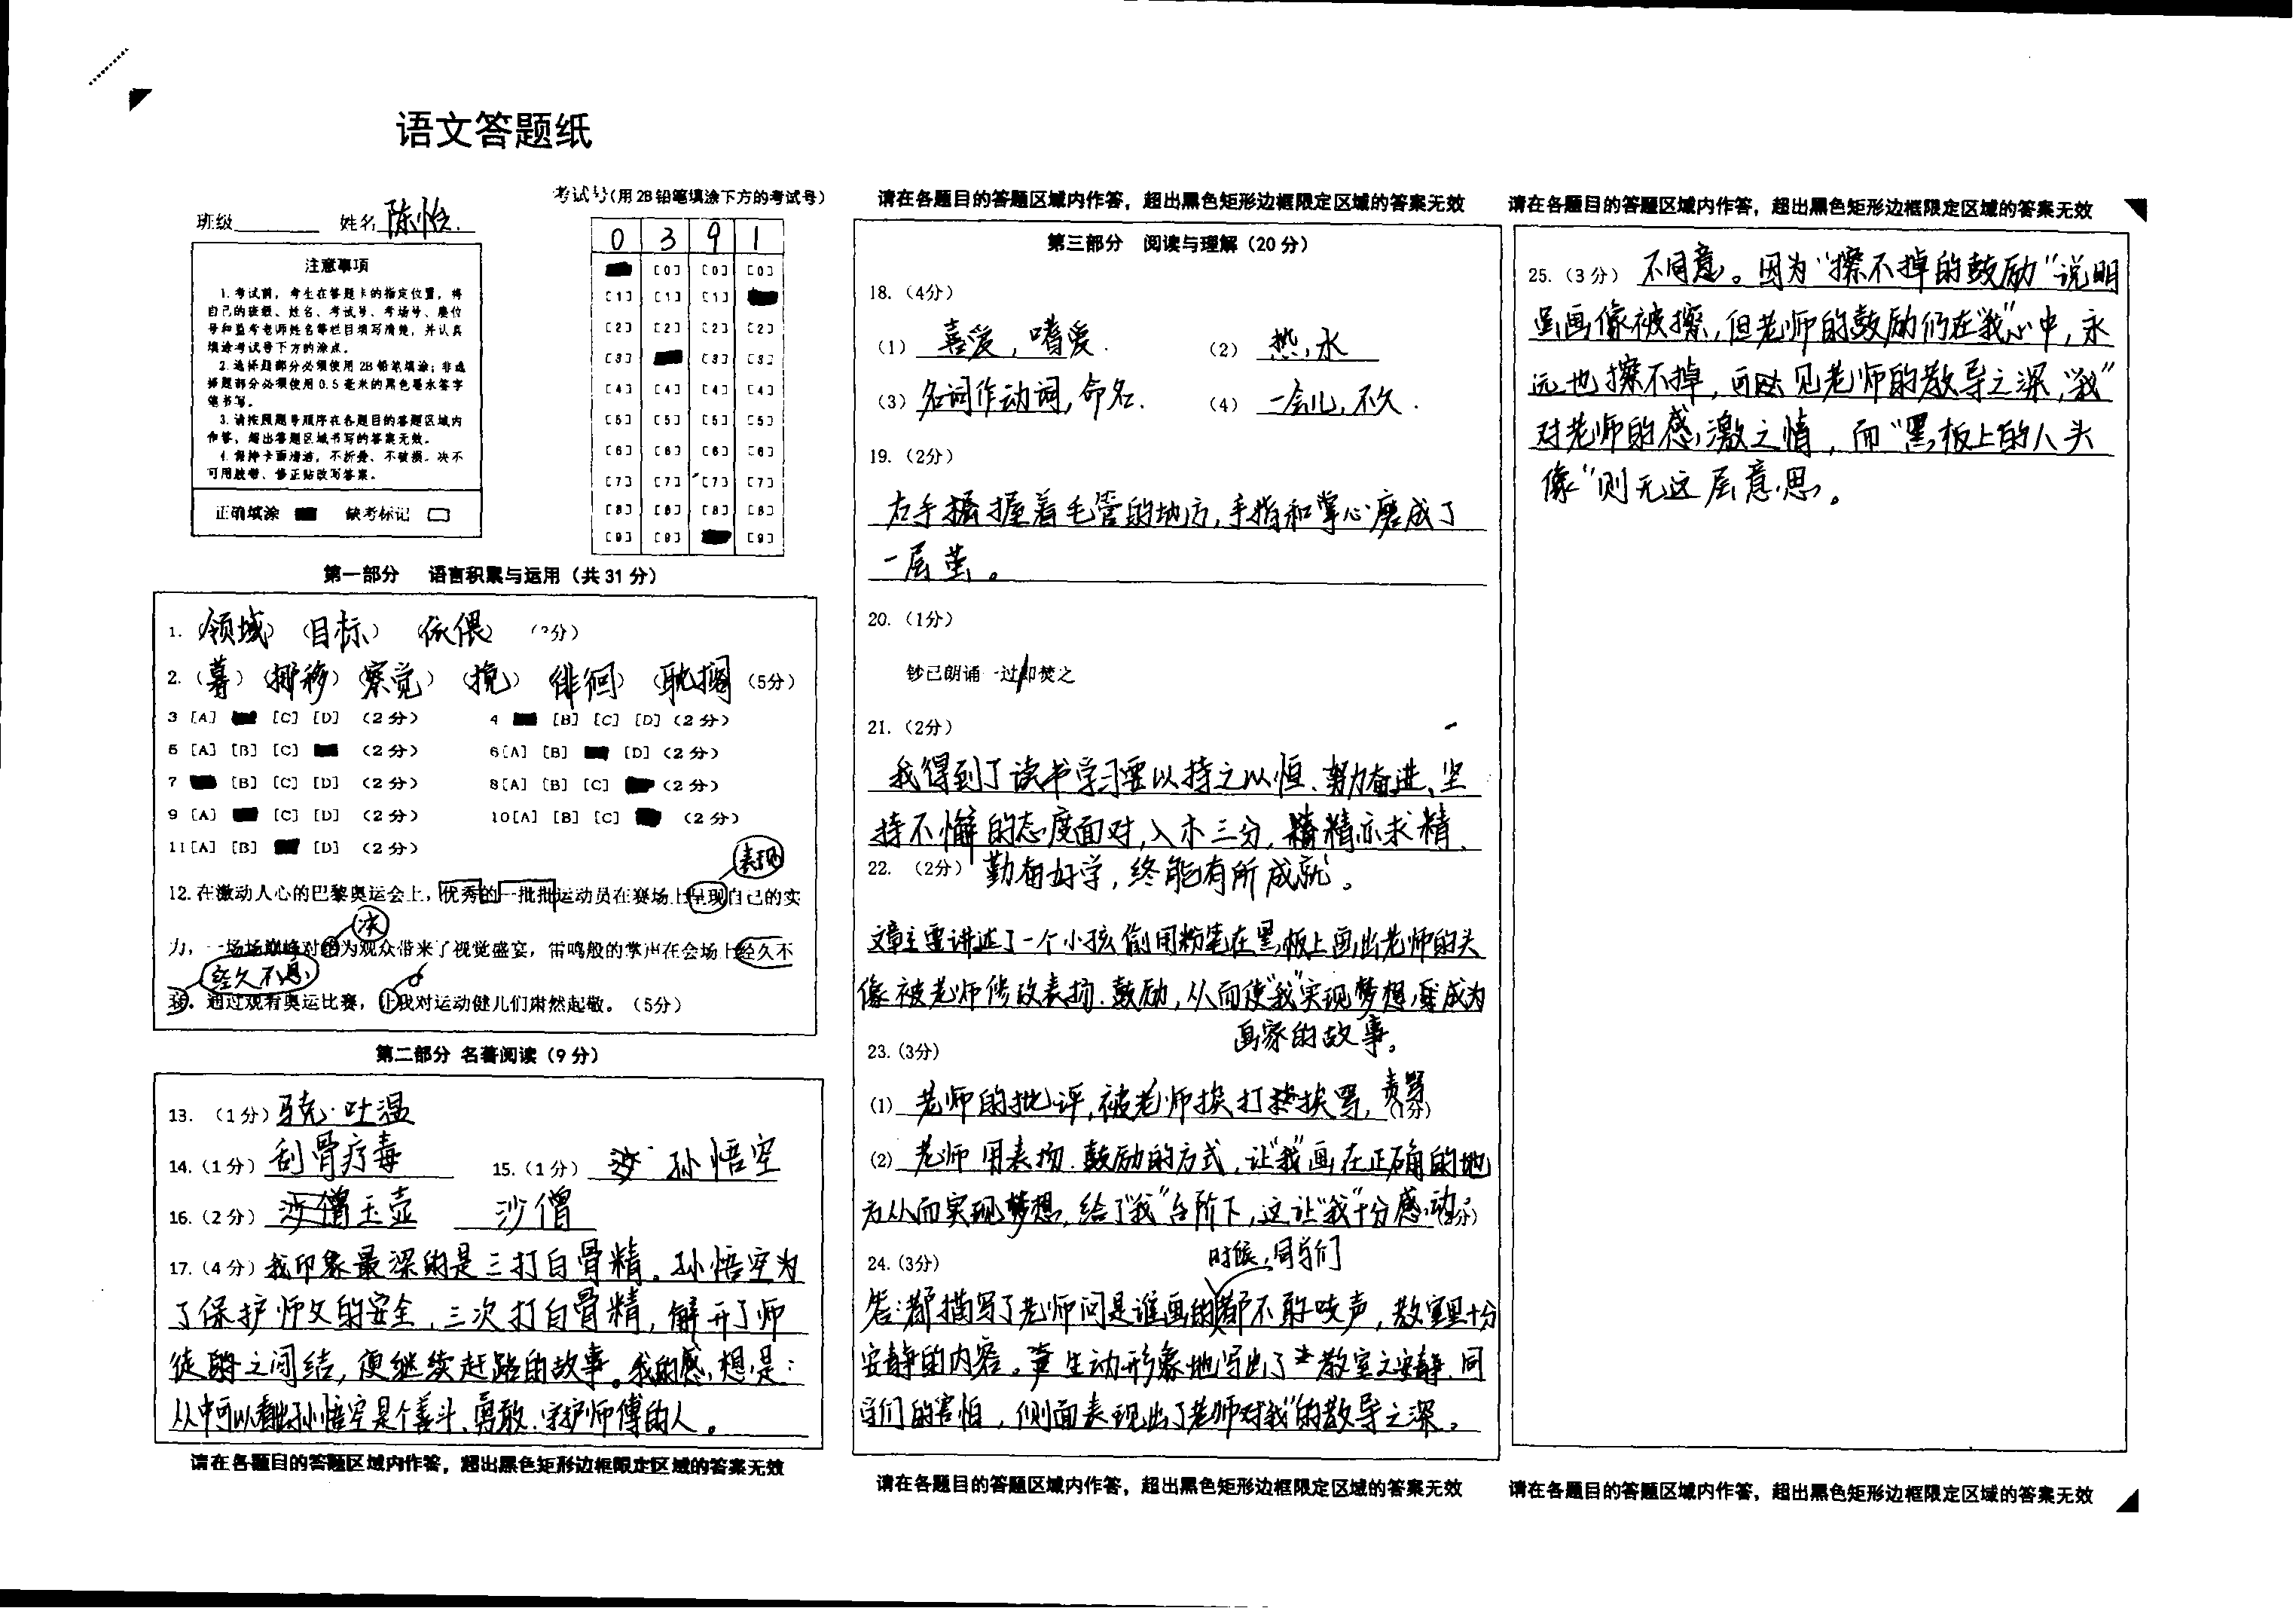 语文答题纸
班级 姓名 陈怡
考试号(用 2B 铅笔填涂下方的考试号)
0 3 9 1
注意事项
1. 考试前,考生在答题卡的指定位置,将
自己的班级、姓名、考试号、考场号、座位
号和监考老师姓名等栏目填写清楚,并认真
填涂考试号下方的涂点。
2. 选择题部分必须使用 2B 铅笔填涂;非选
择题部分必须使用 0.5 毫米的黑色墨水签字
笔书写。
3. 请按照题号顺序在各题目的答题区域内
作答,超出答题区域书写的答案无效。
4. 保持卡面清洁,不折叠、不破损。决不
可用胶带、修正贴改写答案。
正确填涂 缺考标记
[0] [0] [0]
[1] [1] [1]
[2] [2] [2] [2]
[3] [3] [3]
[4] [4] [4] [4]
[5] [5] [5] [5]
[6] [6] [6] [6]
[7] [7] [7] [7]
[8] [8] [8] [8]
[9] [9] [9]
第一部分 语言积累与运用(共 31 分)
1. (领域) (目标) (依偎)
2. (募) (挪移) (察觉) (挽) (徘徊) (耽搁) (5分)
3 [A] [C] [D] (2 分) 4 [B] [C] [D] (2 分)
5 [A] [B] [C] (2 分) 6 [A] [B] [D] (2 分)
7 [B] [C] [D] (2 分) 8 [A] [B] [C] (2 分)
9 [A] [C] [D] (2 分) 10 [A] [B] [C] (2 分)
11 [A] [B] [D] (2 分)
表现
12. 在激动人心的巴黎奥运会上,优秀的一批批运动员在赛场上呈现自己的实
决
力,一场场巅峰对绝为观众带来了视觉盛宴,雷鸣般的掌声在会场上经久不
经久不息
。通过观看奥运比赛,让我对运动健儿们肃然起敬。(5分)
第二部分 名著阅读(9 分)
13. (1 分) 骁·吐温
14. (1 分) 刮骨疗毒 15. (1 分) 孙悟空
16. (2 分) 沙僧玉壶 沙僧
17. (4 分) 我印象最深的是三打白骨精。孙悟空为
了保护师父的安全,三次打白骨精,解开了师
徒之间结,便继续赶路的故事。我的感想是:
从中可以看出孙悟空是个善斗、勇敢、守护师傅的人。
请在各题目的答题区域内作答,超出黑色矩形边框限定区域的答案无效
请在各题目的答题区域内作答,超出黑色矩形边框限定区域的答案无效
第三部分 阅读与理解(20 分)
18. (4分)
(1) 喜爱,嗜爱. (2) 热,水
(3) 名词作动词,命名. (4) 一会儿,不久.
19. (2分)
右手握着毛管的地方,手指和掌心磨成了
一层茧。
20. (1分)
钞已朗诵一过/即焚之
21. (2分)
我得到了读书学习要以持之以恒、努力奋进、坚
持不懈的态度面对,入木三分,精亦求精、
22. (2分) 勤奋好学,终能有所成就。
文章主要讲述了一个小孩偷用粉笔在黑板上画出老师的头
像被老师修改表扬、鼓励,从而使“我”实现梦想,成为
画家的故事。
23. (3分)
(1) 老师的批评,被老师挨打挨骂,责骂 (1分)
(2) 老师用表扬、鼓励的方式,让“我”画在正确的地
方从而实现梦想,给了“我”台阶下,这让“我”十分感动
24. (3分) 时候,同学们
答:都描写了老师问是谁画的都不敢吱声,教室里十分
安静的内容。生动形象地写出了教室之安静、同
学们的害怕,侧面表现出了老师对“我”的教导之深。
请在各题目的答题区域内作答,超出黑色矩形边框限定区域的答案无效
请在各题目的答题区域内作答,超出黑色矩形边框限定区域的答案无效
25. (3 分) 不同意。因为“擦不掉的鼓励”说明
虽画像被擦,但老师的鼓励仍在“我”心中,永
远也擦不掉,可见老师的教导之深,“我”
对老师的感激之情,而“黑板上的人头
像”则无这层意思。
请在各题目的答题区域内作答,超出黑色矩形边框限定区域的答案无效